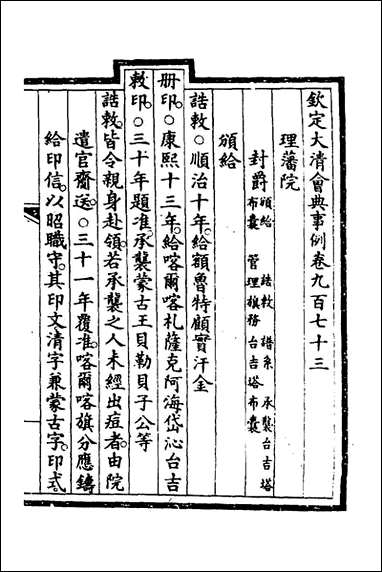 欽定大清會典事例卷九百七十三
理藩院
封爵 頒給 誥敕 譜系 承襲台吉塔
布囊 管理旗務台吉塔布囊
頒給
誥敕。○順治十年。給額魯特顧實汗金
册印。○康熙十三年。給喀爾喀札薩克阿海岱沁台吉
敕印。○三十年題准。承襲蒙古王貝勒貝子公等
誥敕。皆令親身赴領。若承襲之人未經出痘者。由院
遣官齎送。○三十一年覆准。喀爾喀旗分應鑄
給印信。以昭職守。其印文清字兼蒙古字。印式